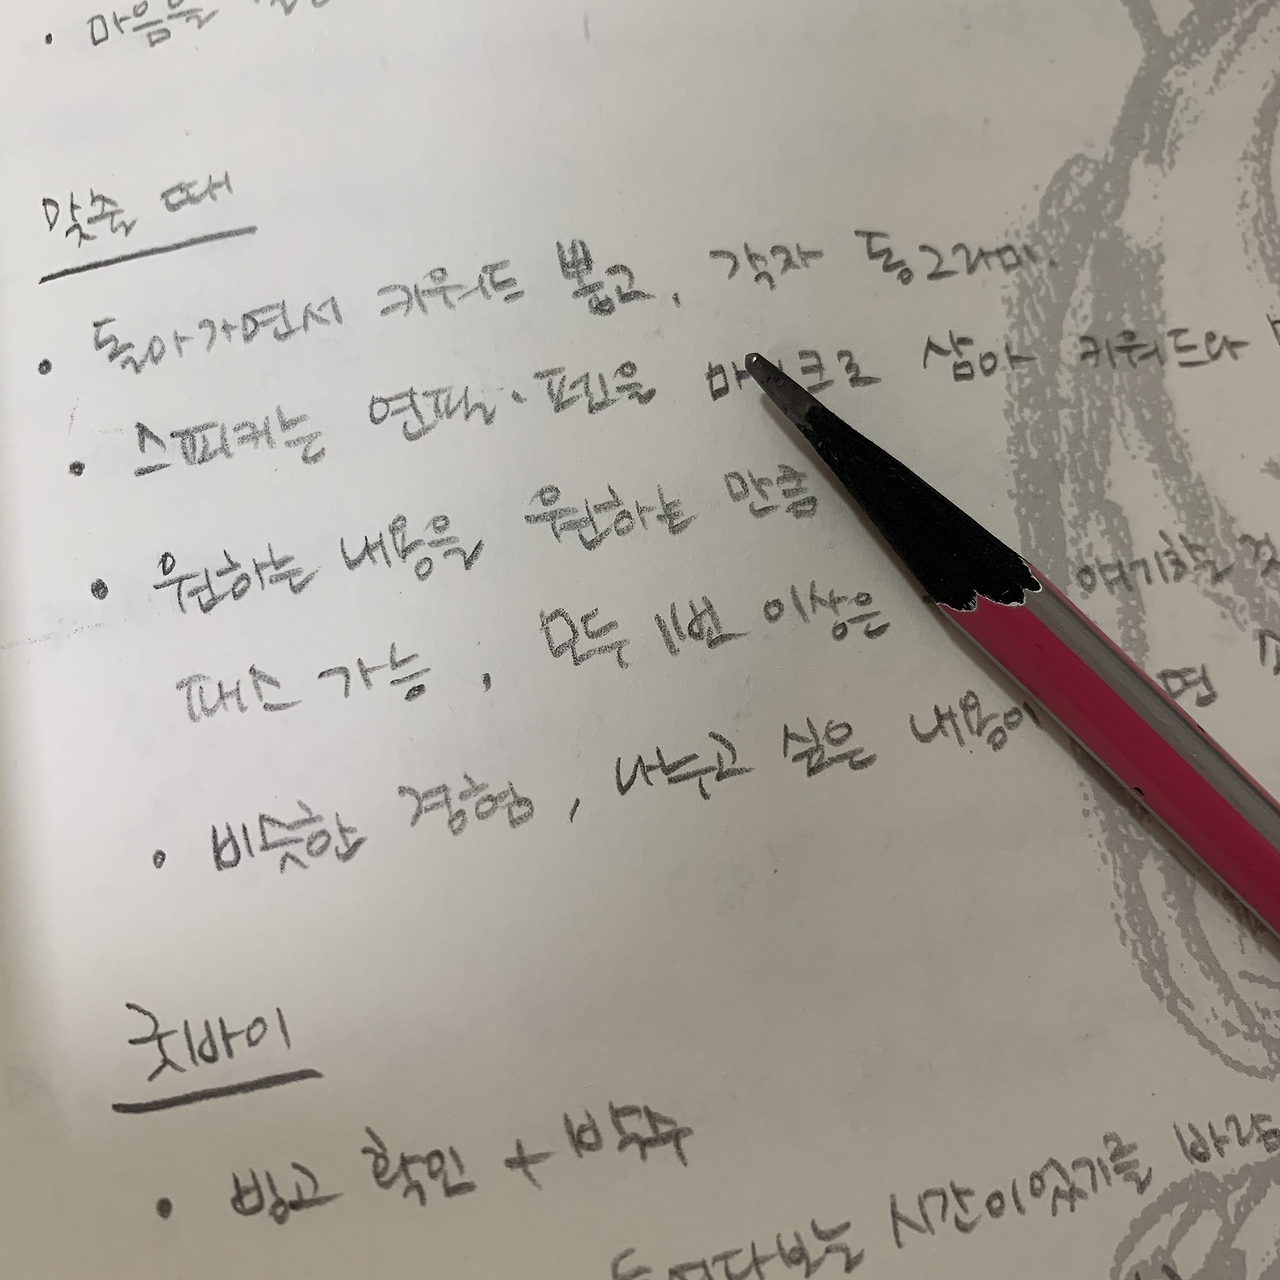 • 마음을
맞출 때
• 돌아가면서 키워드 뽑고, 각자 동그라미.
• 스피커는 연필·펜을 마이크로 삼아 키워드와
• 원하는 내용을 원하는 만큼
패스 가능, 모두 1번 이상은 얘기할
• 비슷한 경험, 나누고 싶은 내용이 면
굿바이
• 빙고 확인 + 박수
들여다보는 시간이었기를 바람